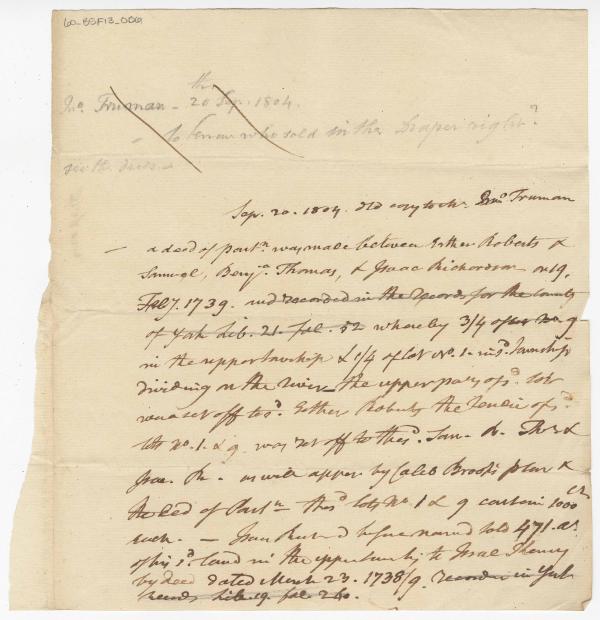 60-BSF13-006
Jno. Truman - 20th Sep. 1804.
- to know who sold in the Draper right?
Sep. 20. 1804. Dld copy to Mr. Jno. Truman
- a deed of partn. was made between Esther Roberts &
Samuel, Benja. Thomas, & Isaac Richardson on 19.
Feby. 1739. and recorded in the records for the County
of York Lib. 21. fol. 52 whereby 3/4 of No. 9
in the upper township & 1/4 of lot No. 1. in sd. township
dividing on the river the upper part of sd. lots
was set off to sd. Esther Roberts the of sd.
lots No. 1. & 9 was set off to the sd. Sam. B. Thos. &
Isaac Ri. as will appear by Caleb Brooks plan &
the deed of Partn. the sd. lots No. 1 & 9 contain 1000 as
each. - Isaac Richd. before named sold 471. as.
of his sd. land in the upper township to Israel
by deed dated March 23. 1738/9. recorded in York
records Lib. 19. fol. 260.